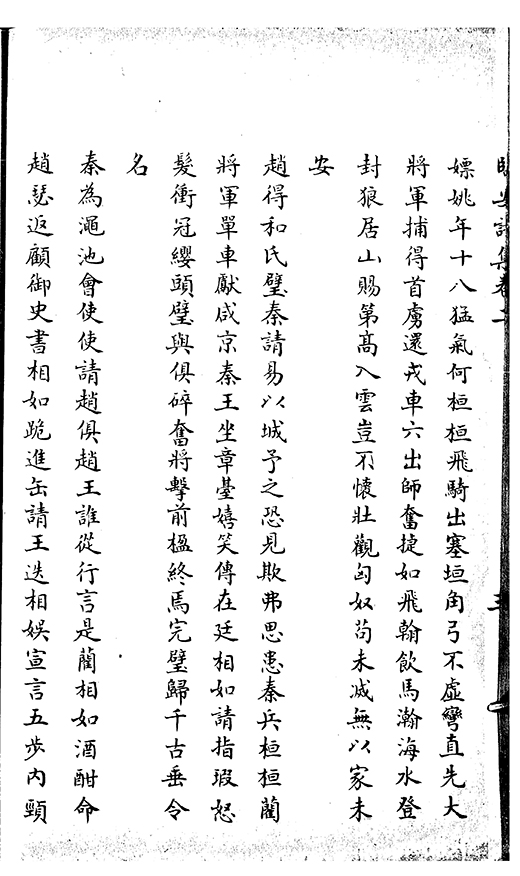 詩集卷二
三
嫖姚年十八猛氣何桓桓飛騎出塞垣角弓不虛彎直先大
將軍捕得首虜還戎車六出師奮捷如飛翰飲馬瀚海水登
封狼居山賜第髙入雲豈不懷壯觀匈奴苟未滅無以家未
安
趙得和氏璧秦請易以城予之恐見欺弗思患秦兵桓桓藺
將軍單車獻咸京秦王坐章臺嬉笑傳在廷相如請指瑕怒
髮衝冠纓頭璧與俱碎奮將擊前楹終焉完璧歸千古垂令
名
秦為澠池會使使請趙俱趙王誰從行言是藺相如酒酣命
趙瑟返顧御史書相如跪進缶請王迭相娛宣言五步內頸